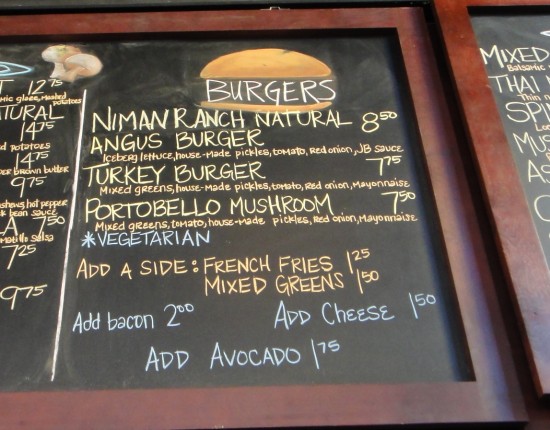 T 12.75
potatoes
TURAL
14.75
d potatoes
14.75
brown butter
9.75
hot pepper
bean sauce
A 7.50
Salsa
7.25
9.75
BURGERS
NIMAN RANCH NATURAL 8.50
ANGUS BURGER
Iceberg lettuce, house-made pickles, tomato, Red onion, JB Sauce
TURKEY BURGER 7.75
Mixed greens, house-made pickles, tomato, Red onion, Mayonnaise
PORTOBELLO MUSHROOM 7.50
Mixed greens, tomato, house-made pickles, Red onion, Mayonnaise
*VEGETARIAN
ADD A SIDE: FRENCH FRIES 1.25
MIXED GREENS 1.50
Add bacon 2.00
ADD CHEESE 1.50
ADD AVOCADO 1.75
MIXED
Balsamic
THAI
Thin
SPIN
MUS
AS